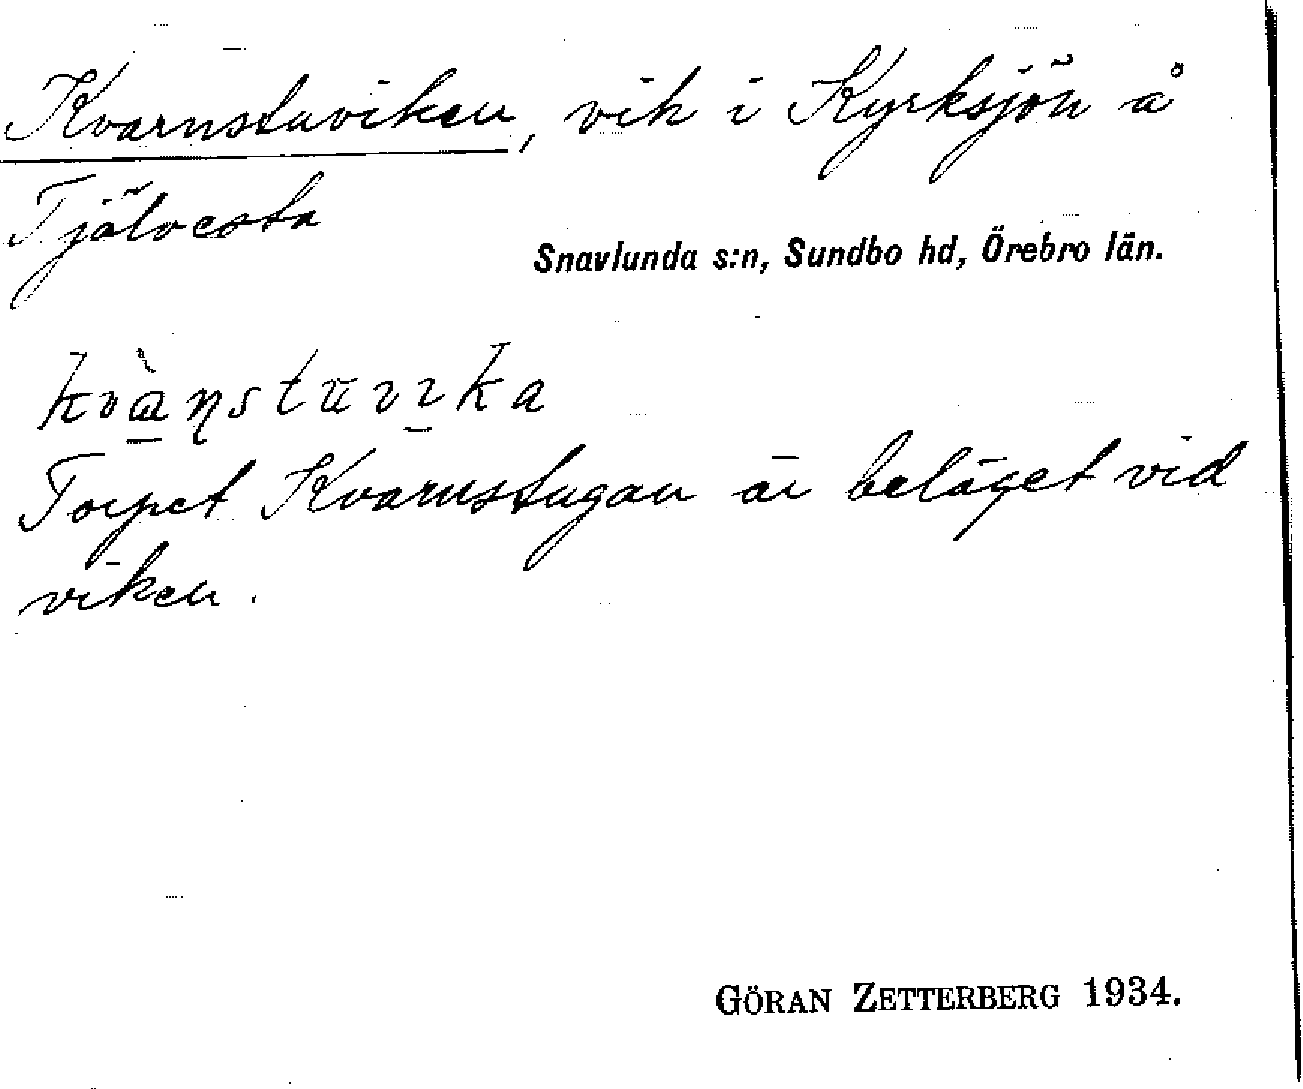 Kvarnstuviken, vik i Kyrksjön å
Tjälvesta
Snavlunda s:n, Sundbo hd, Örebro län.
kvàṉstuvıka
Torpet Kvarnstugan är beläget vid
viken.
GÖRAN ZETTERBERG 1934.